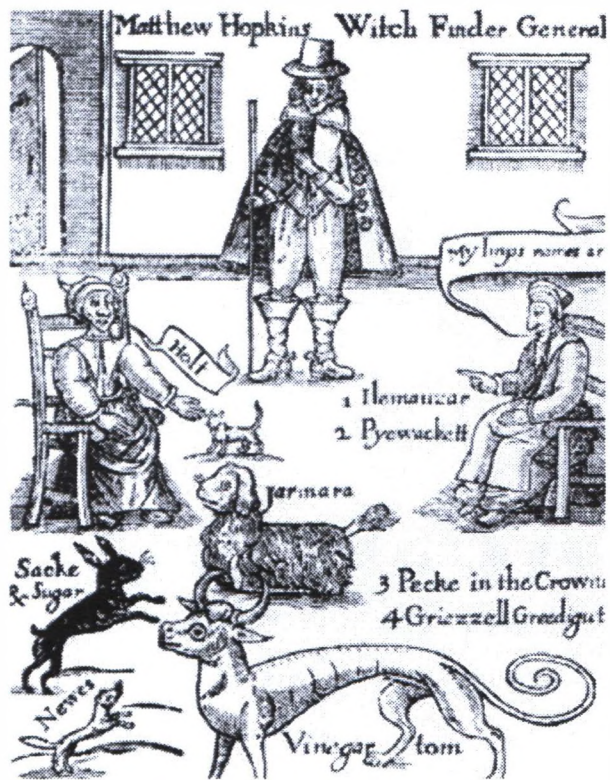 Matthew Hopkins Witch Finder General
My Imps names ar
Holt
1 Ilemauzar
2 Pyewackett
Jarmara
Sacke
& Sugar
3 Pecke in the Crown
4 Griezzell Greedigut
Newes
Vinegar tom